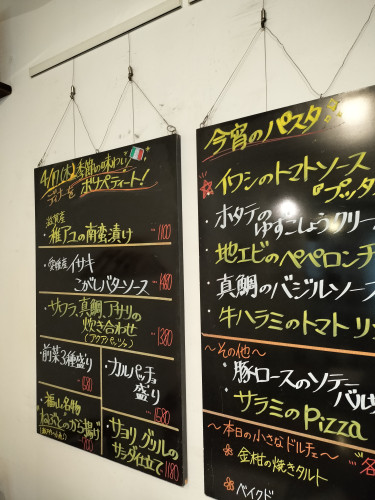 4/17(木)季節の味わい
ディナーを ボナペティート!
滋賀産
稚アユの南蛮漬け …1100
・愛媛産イサキ
こがしバターソース …1480
・サワラ、真鯛、アサリの
炊き合わせ
(アクアパッツァ) …1380
・前菜3種盛り
…1580
・カルパッチョ
盛り
…1580
・福山名物
ねぶとのから揚げ
・サヨリ、グリルの
サラダ仕立て 1180
今宵のパスタ
イワシのトマトソース
『プッタ
・ホタテの
ゆずこしょうクリー
・地エビのペペロンチ
・真鯛のバジルソース
・牛ハラミのトマトリッ
〜その他〜
・豚ロースのソテー
バル
・サラミのPizza
〜本日の小さなドルチェ〜
・金柑の焼きタルト
・ベイクド